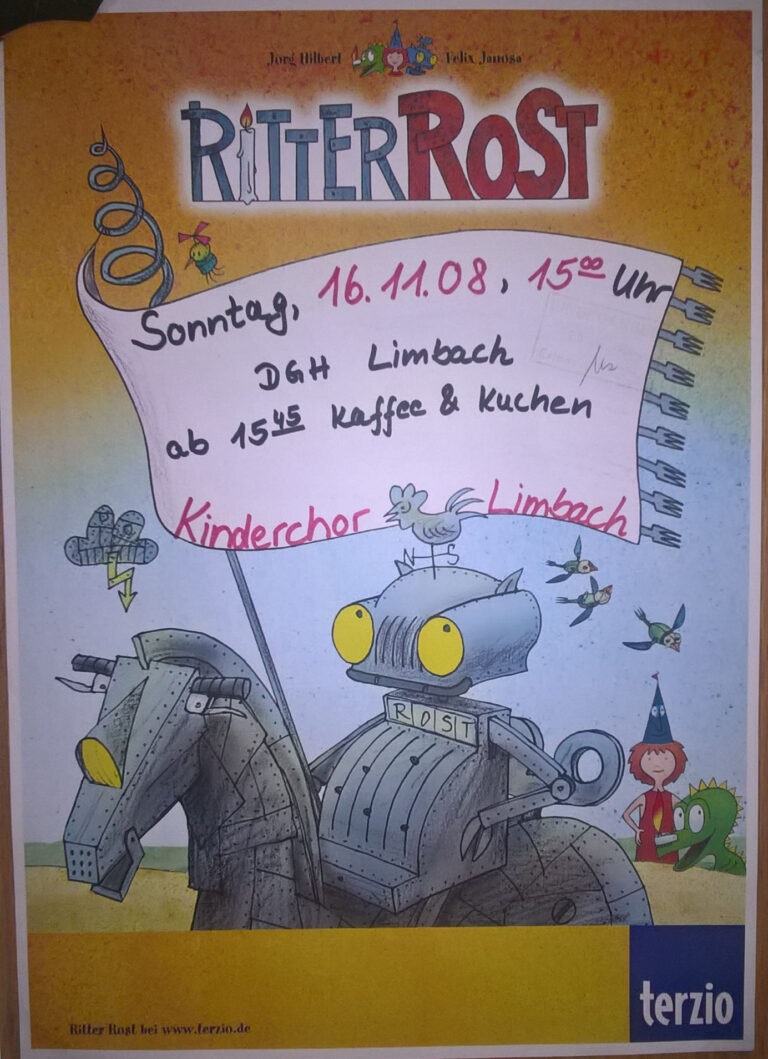 Jörg Hilbert Felix Janosa
RITTER ROST
Sonntag, 16.11.08, 15⁰⁰ Uhr
DGH Limbach
ab 15⁴⁵ Kaffee & Kuchen
Kinderchor Limbach
N S
ROST
terzio
Ritter Rost bei www.terzio.de